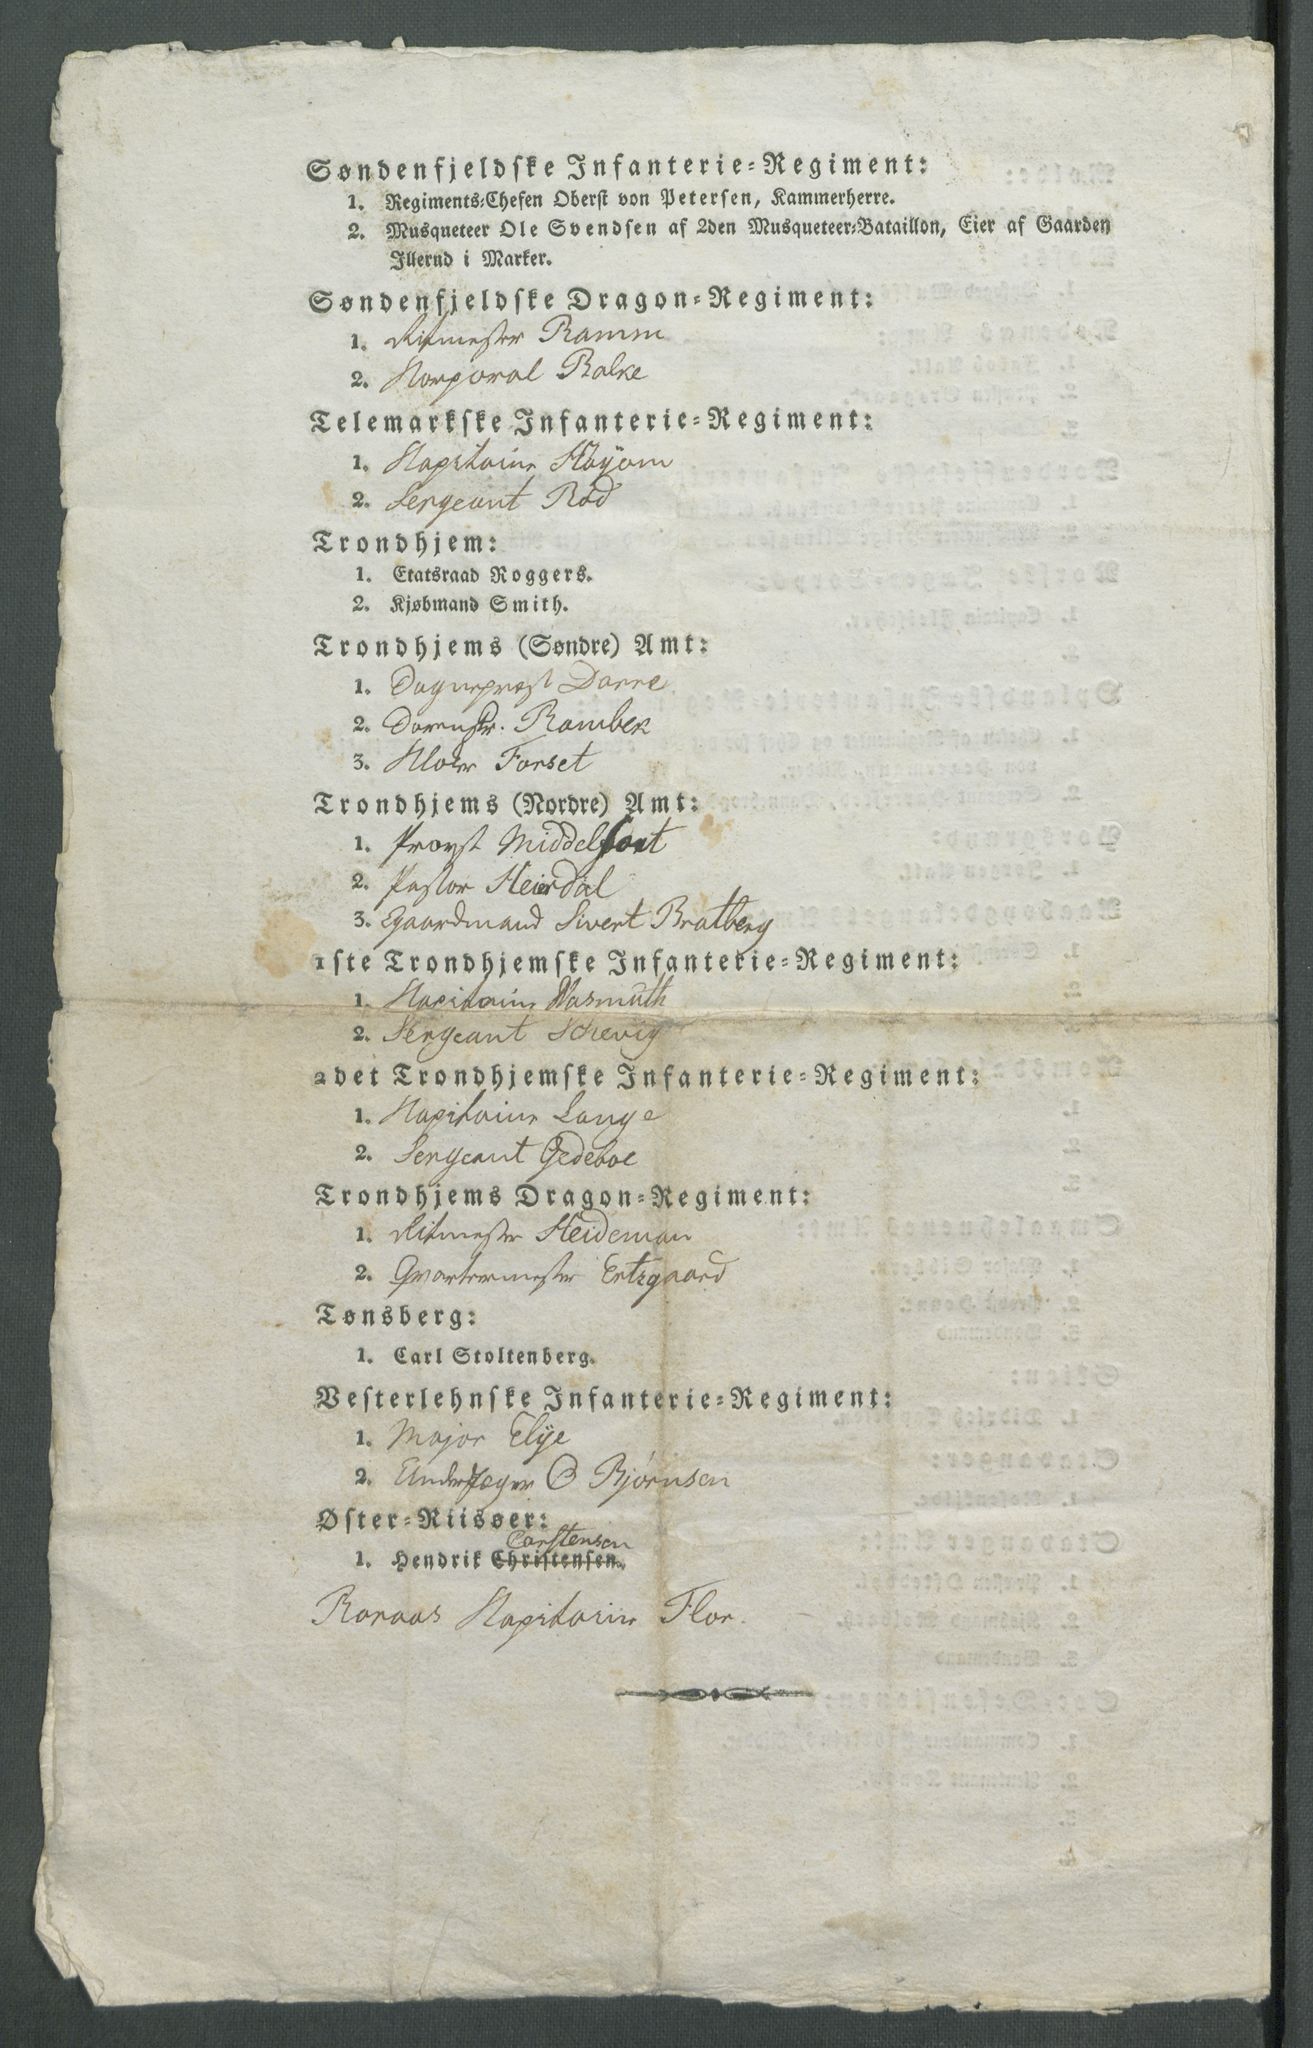 Søndenfjeldske Infanterie-Regiment:
1. Regiments-Chefen Oberst von Petersen, Kammerherre.
2. Musqueteer Ole Svendsen af 2den Musqueteer-Bataillon, Eier af Gaarden
Illerud i Marker.
Søndenfjeldske Dragon-Regiment:
1. Ritmester Ramm
2. Korporal Balke
Telemarkske Infanterie-Regiment:
1. Kapitain Høyom
2. Sergeant Rød
Trondhjem:
1. Etatsraad Roggers.
2. Kjøbmand Smith.
Trondhjems (Søndre) Amt:
1. Sognepræst Darre
2. Rambek
3. Forset
Trondhjems (Nordre) Amt:
1. Provst Middelfart
2. Pastor Heierdal
3. Gaardmand Sivert Bratberg
1ste Trondhjemske Infanterie-Regiment:
1. Kapitain Wasmuth
2. Sergeant Schevig
2det Trondhjemske Infanterie-Regiment:
1. Kapitain Lange
2. Sergeant Gedeboe
Trondhjems Dragon-Regiment:
1. Ritmester Heideman
2. Qvartermester Ertzgaard
Tønsberg:
1. Carl Stoltenberg.
Vesterlehnske Infanterie-Regiment:
1. Major Elye
2. Underjæger O Bjørnsen
Øster-Riisøer:
Carstensen
1. Hendrik Christensen.
Roraas Kapitain Flor.